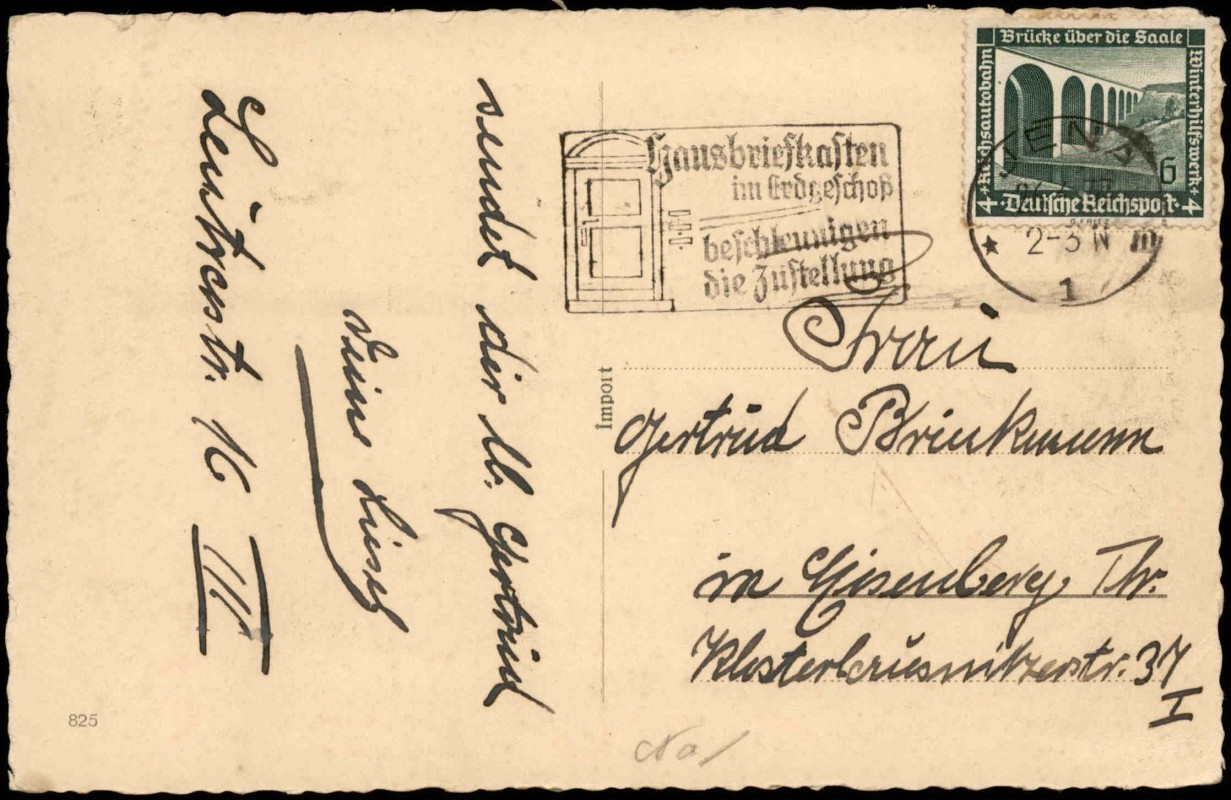 sendet dir lb. Gertrud
deine Liesel
Leutrastr. 16 III
Brücke über die Saale
4+Reichsautobahn
Winterhilfswerk+
6
4 ·Deutsche Reichspost· 4
JENA
2-3 N
m
1
Hausbriefkasten
im Erdgeschoß
beschleunigen
die Zustellung
Import
Frau
Gertrud Brinkmann
in Eisenberg, Thr.
Klosterlausnitzerstr. 37
I
825